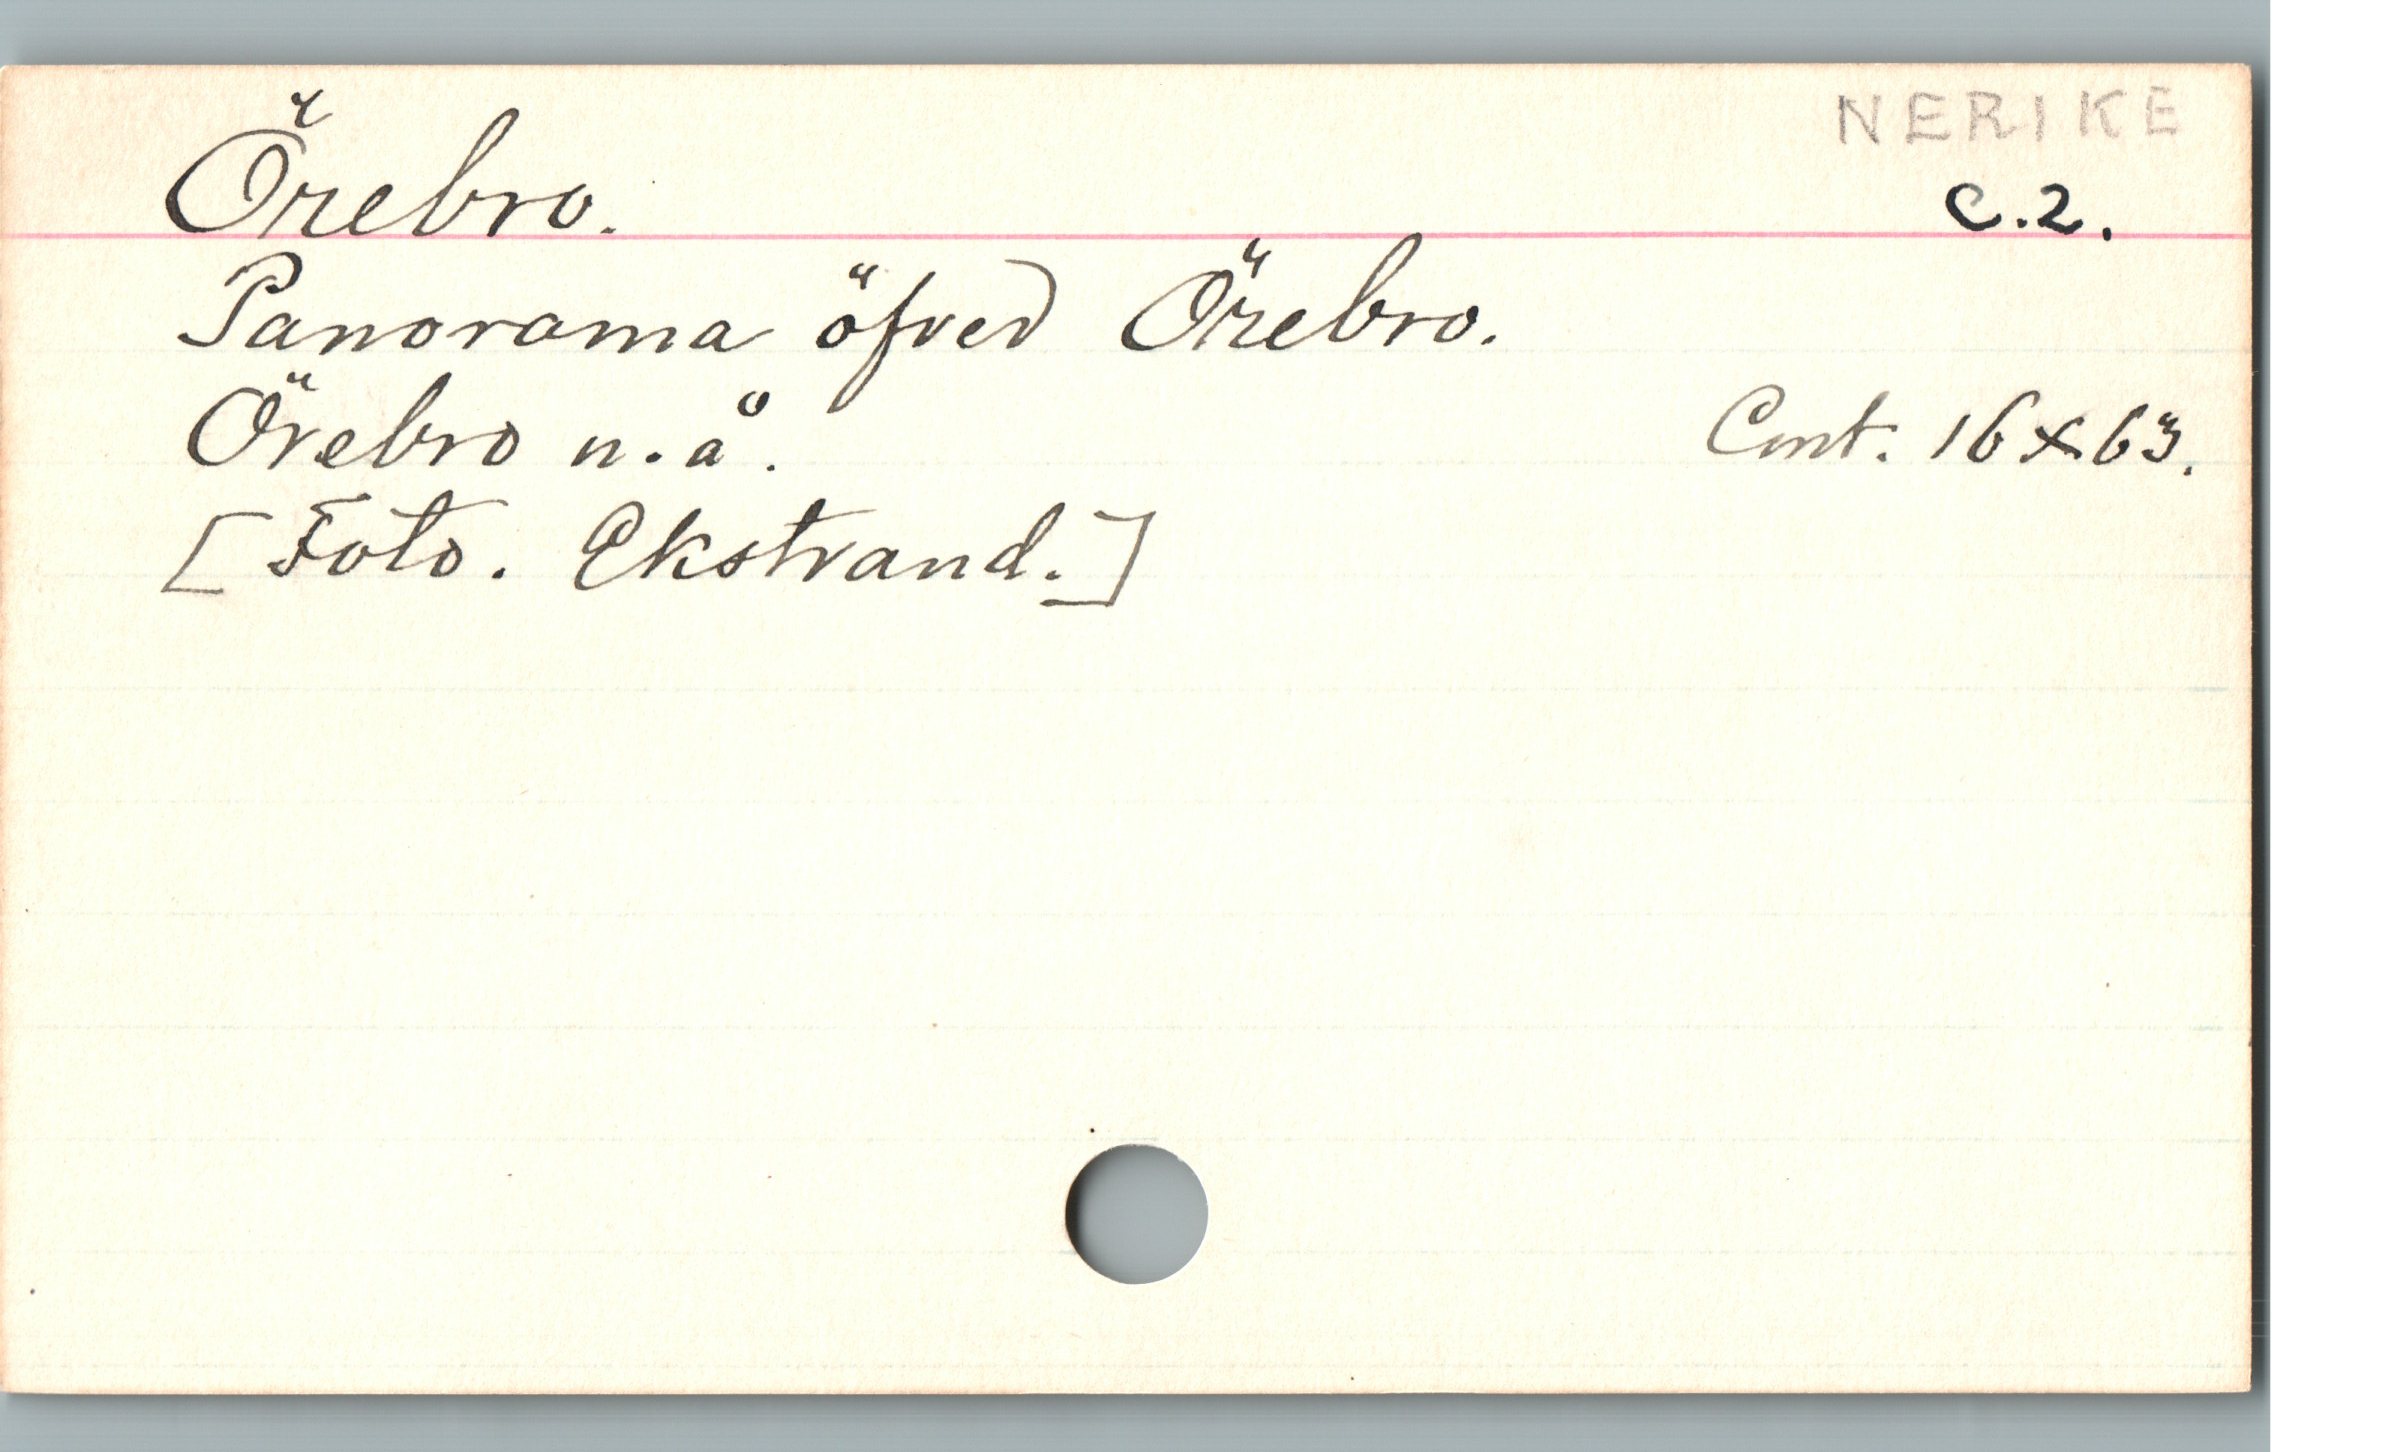 NERIKE
Örebro. C.2.
Panorama öfver Örebro.
Örebro n.å. Cmt. 16x63.
[Foto. Ekstrand.]